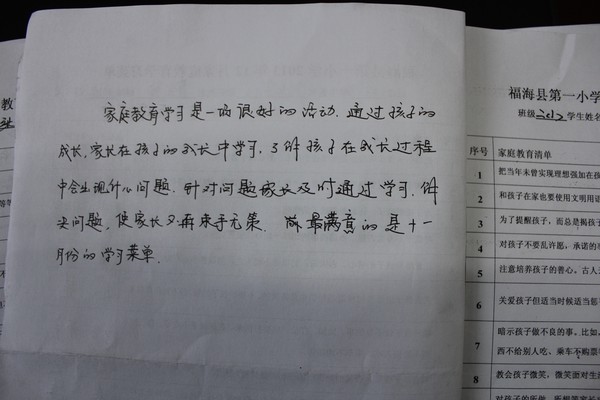 家庭教育学习是一项很好的活动.通过孩子的
成长,家长在孩子的成长中学习.了解孩子在成长过程
中会出现什么问题.针对问题家长及时通过学习.解
决问题,使家长不再束手无策.　最满意的是十一
月份的学习菜单.
福海县第一小学
班级 学生姓名
序号 家庭教育清单
1 把当年未曾实现理想强加在孩
2 和孩子在家也要使用文明用语
3 为了提醒孩子,而总是揭孩子
4 对孩子不要乱许愿,承诺的事
5 注意培养孩子的善心。古人云
6 关爱孩子但适当时候适当惩
7 暗示孩子做不良的事。比如,
西不给别人吃、乘车不购票等
8 教会孩子微笑,微笑面对生活